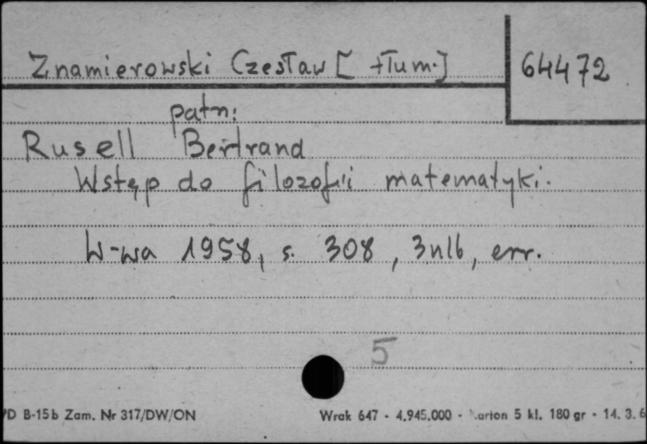 Znamierowski Czesław [tłum.]
64472
patrz:
Rusell Bertrand
Wstęp do filozofii matematyki.
W-wa 1958, s. 308, 3nlb, err.
5
PD B-15b Zam. Nr 317/DW/ON
Wrak 647 - 4.945.000 - Karton 5 kl. 180 gr - 14. 3. 6